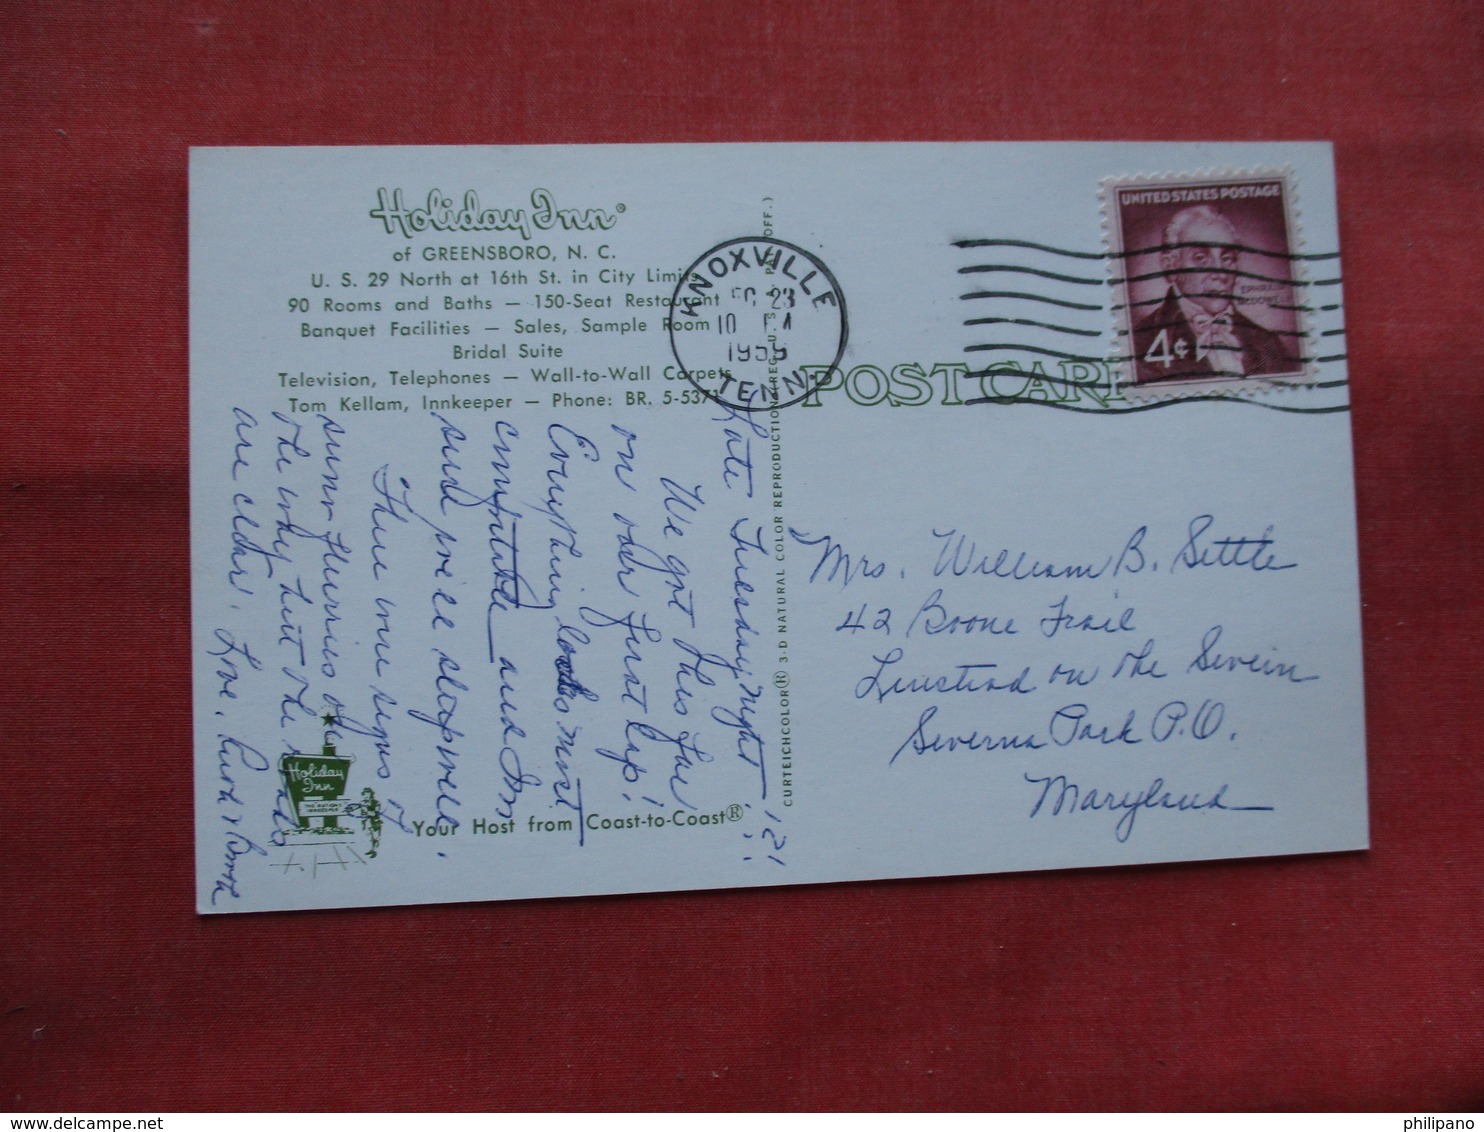 Holiday Inn®
of GREENSBORO, N. C.
U. S. 29 North at 16th St. in City Limits
90 Rooms and Baths — 150-Seat Restaurant
Banquet Facilities — Sales, Sample Room
Bridal Suite
Television, Telephones — Wall-to-Wall Carpets
Tom Kellam, Innkeeper — Phone: BR. 5-5371
Late Tuesday night 12!
We got this far
on our first lap!
Everything looks most
comfortable and I'm
sure we'll sleep well.
There were signs of
snow flurries
the way but the roads
are clear. Love,
Holiday
Inn
Your Host from Coast-to-Coast®
CURTEICHCOLOR® 3-D NATURAL COLOR REPRODUCTION (REG. U. S. PAT. OFF.)
KNOXVILLE
23
10
TENN.
UNITED STATES POSTAGE
EPHRAIM
MCDOWELL
4¢
POST CARD
Mrs. William B. Settle
42 Boone Trail
Linstead on the Severn
Severna Park P.O.
Maryland
philipano